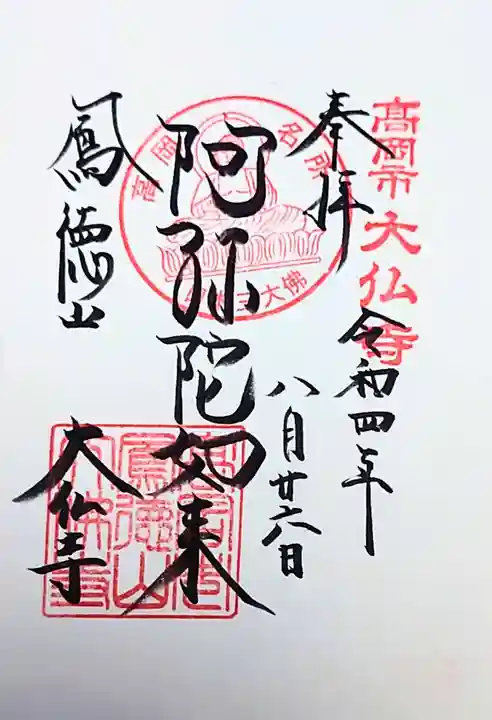 高岡市大仏寺
奉拝
令和四年
八月廿六日
阿弥陀如来
高岡名所
大佛
鳳徳山
大仏寺
鳳徳山